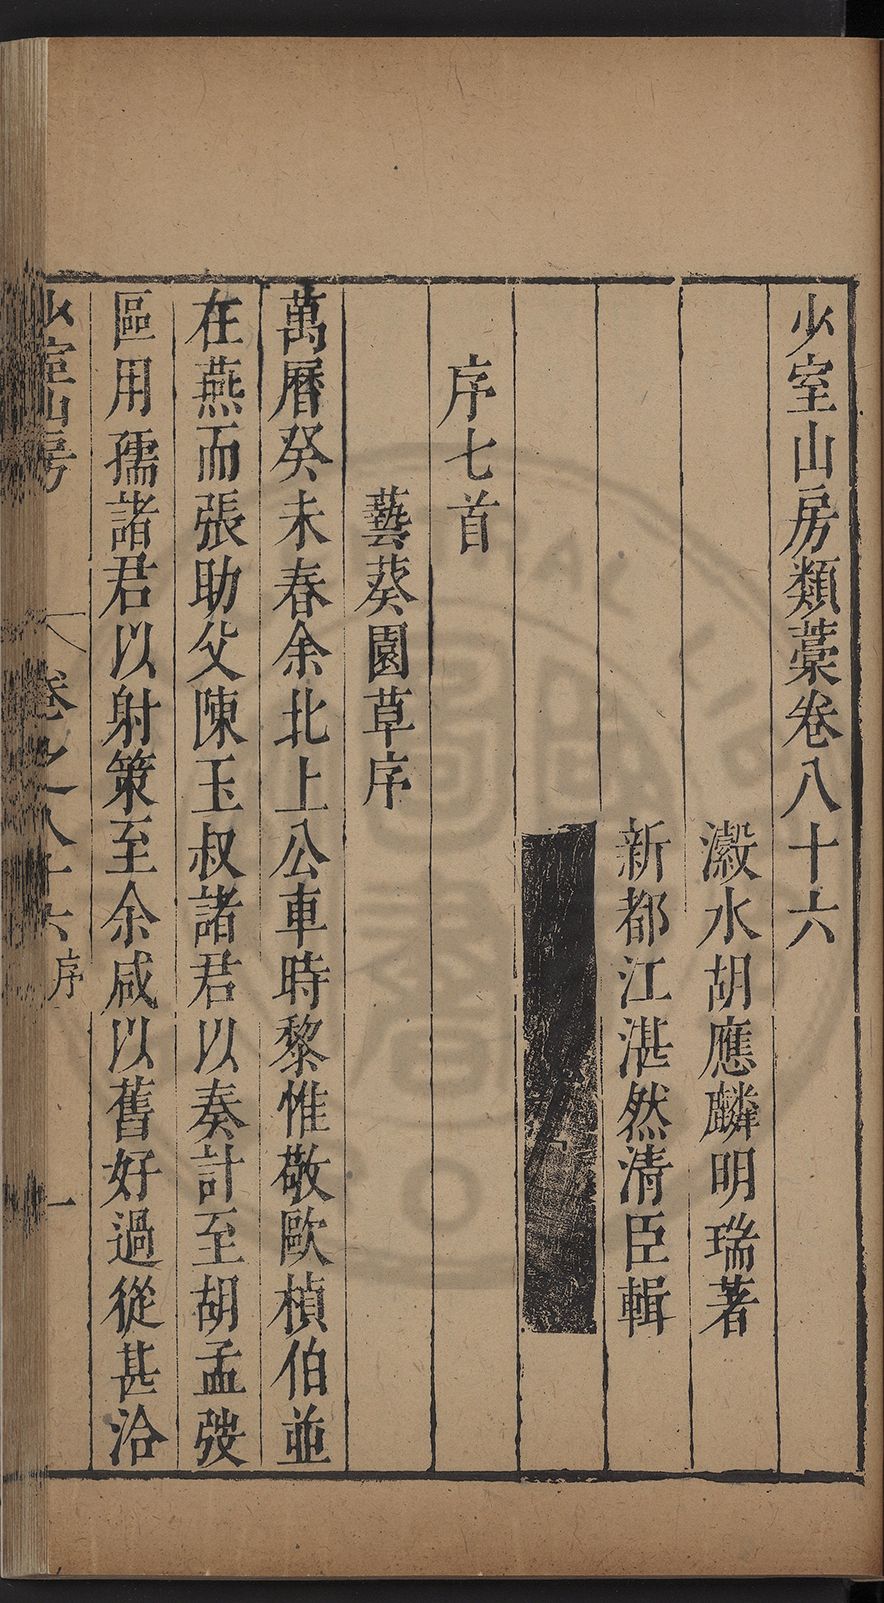 少室山房類藁卷八十六
瀫水胡應麟明瑞著
新都江湛然清臣輯
序七首
藝葵園草序
萬曆癸未春余北上公車時黎惟敬歐楨伯並
在燕而張助父陳玉叔諸君以奏計至胡孟弢
區用孺諸君以射策至余咸以舊好過從甚洽
少室山房
卷之八十六
序
一